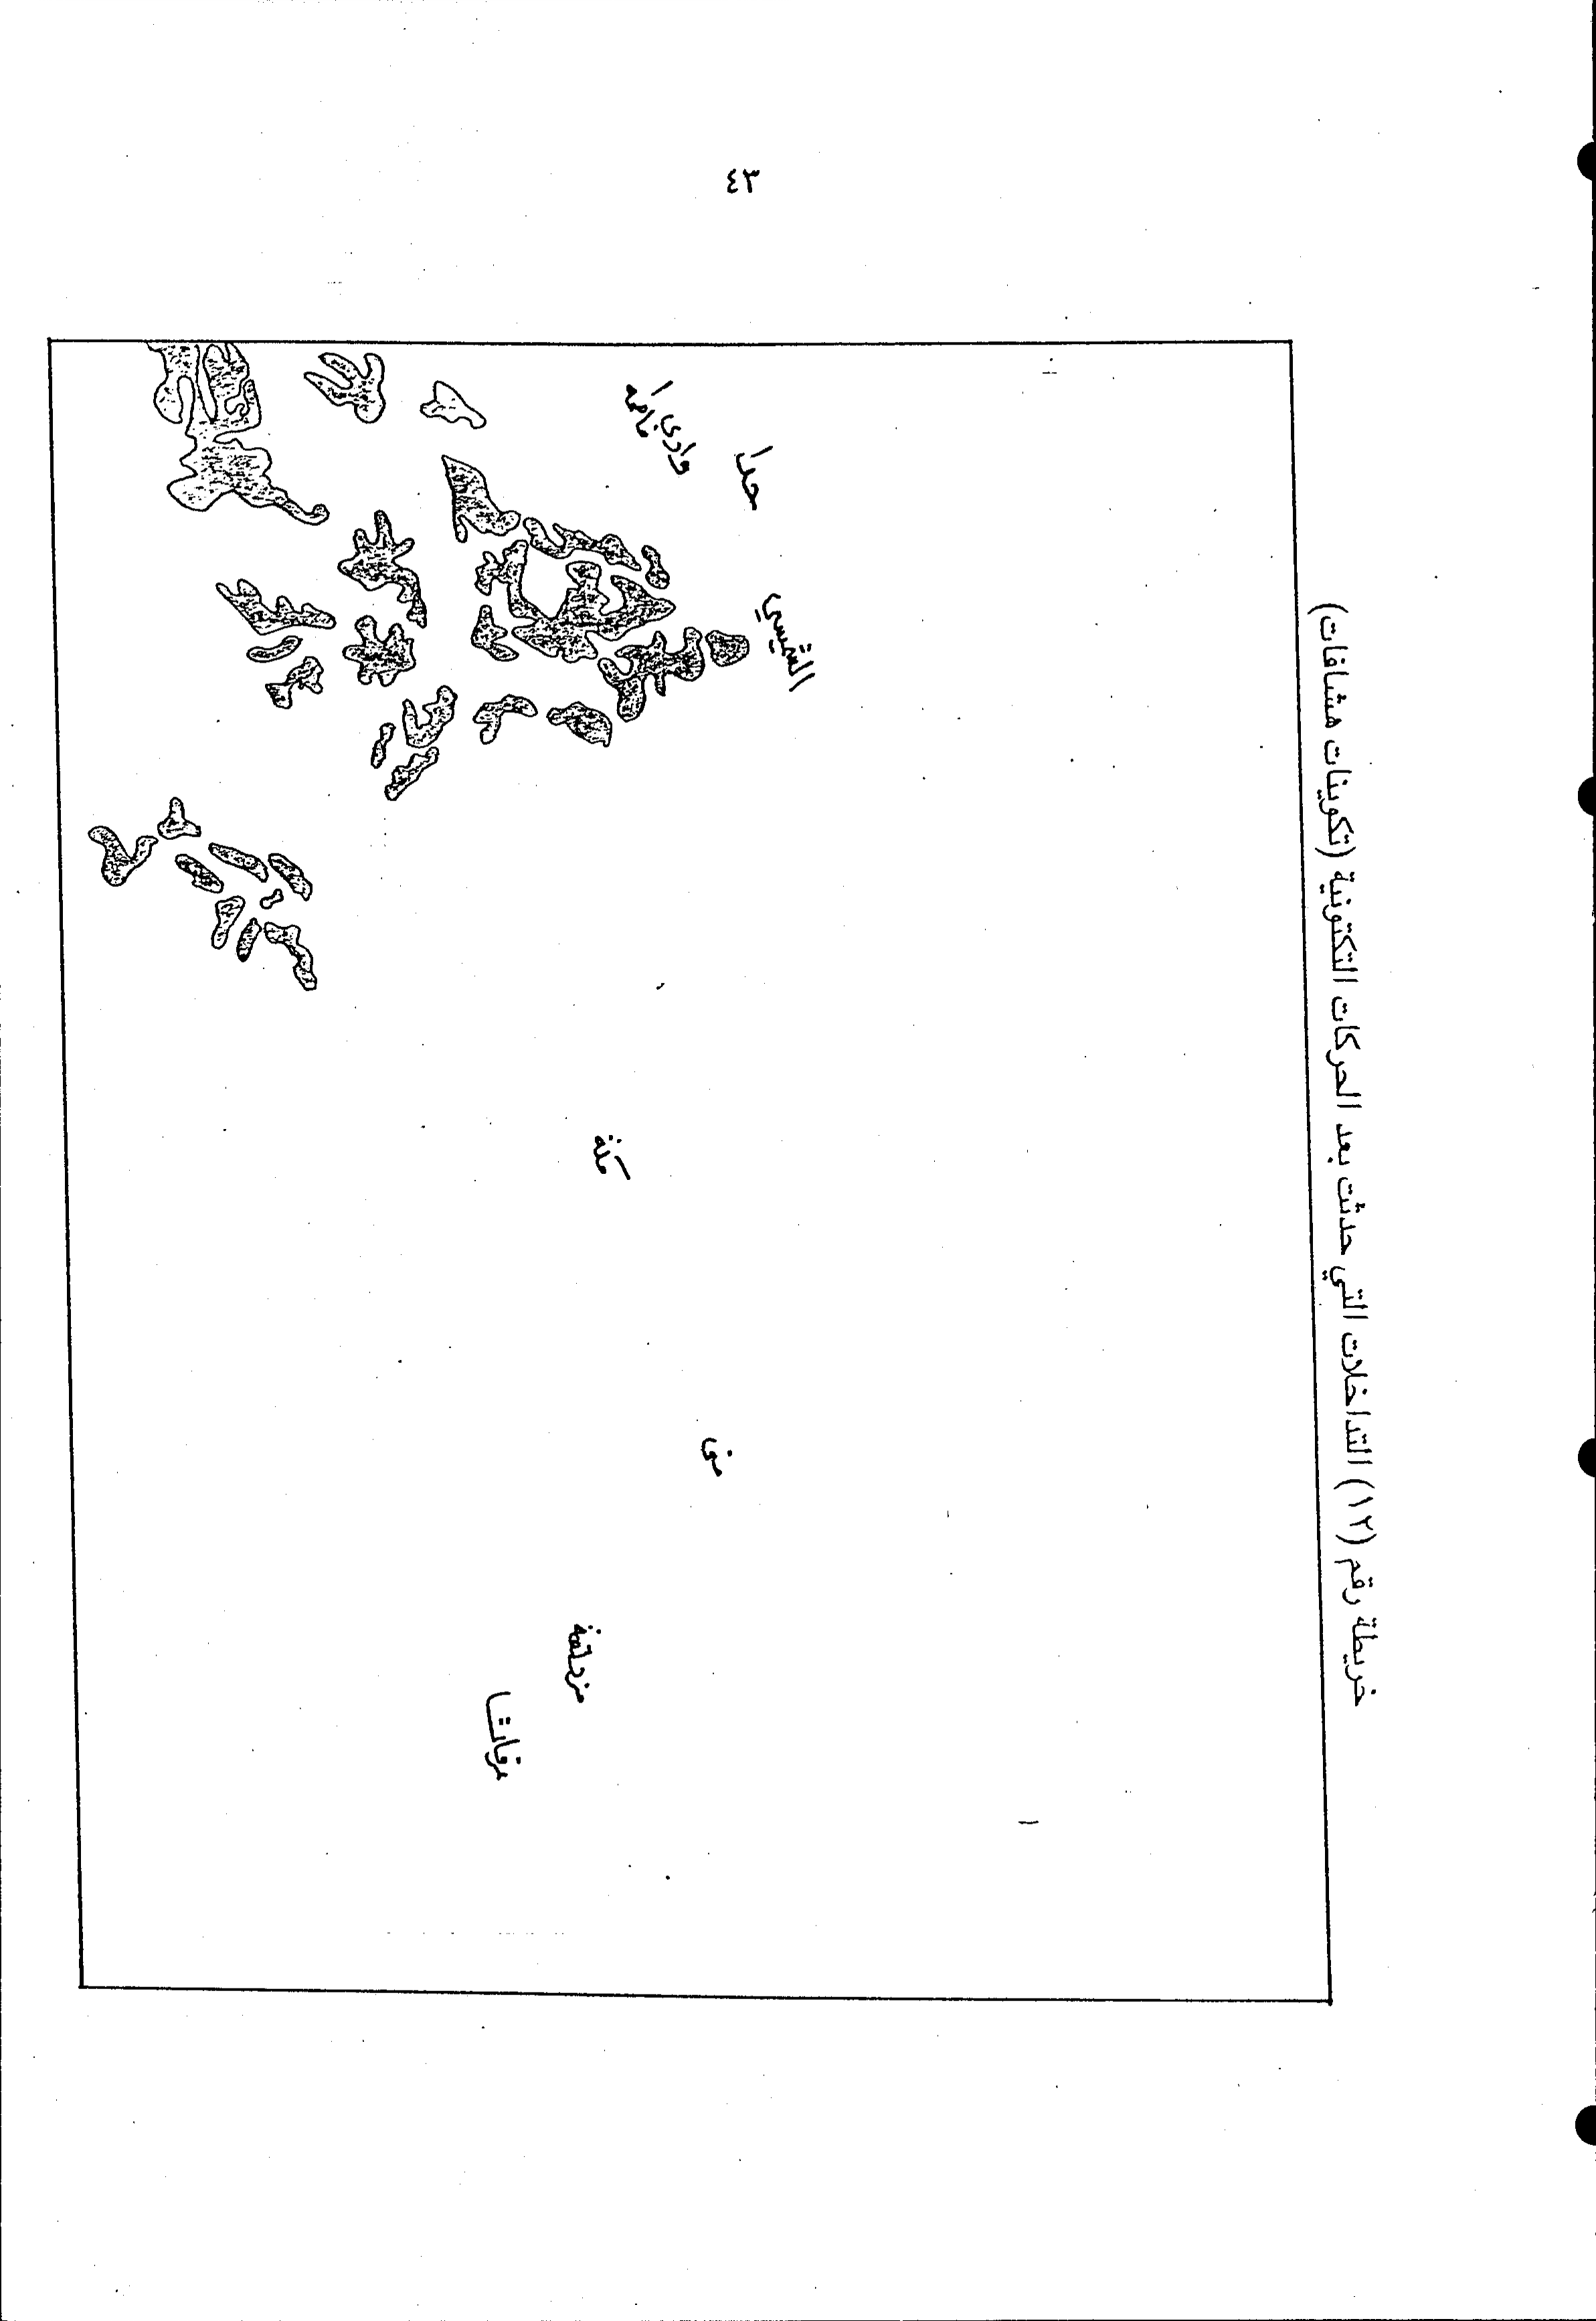 ٤٣
خريطة رقم (١٢) التداخلات التي حدثت بعد الحركات التكتونية (تكوينات مشافات)
حدا
وادى
فاطمه
الشميسي
مكة
منى
مزدلفة
عرفات